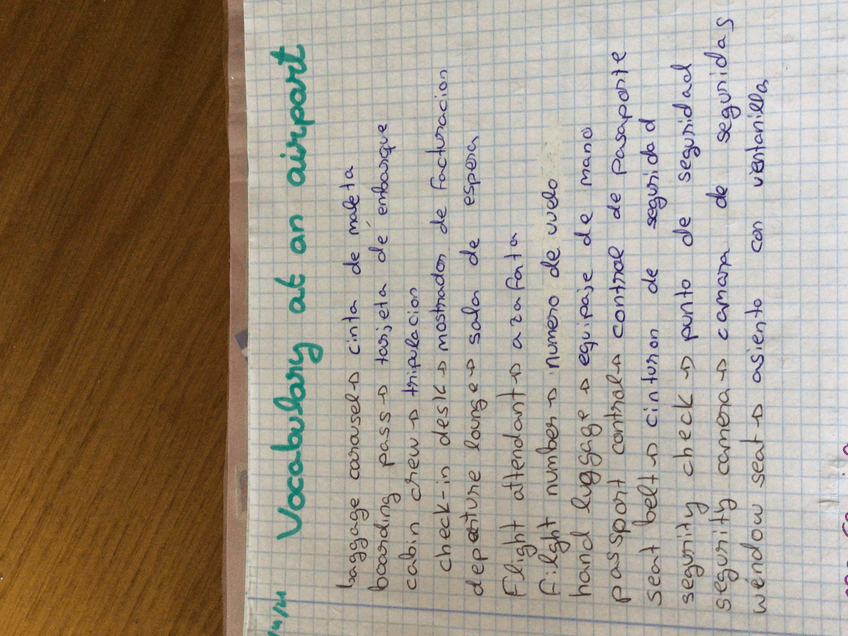 Vocabulary at an airport
baggage carousel → cinta de maleta
boarding pass → tarjeta de embarque
cabin crew → tripulacion
check-in desk → mostrador de facturacion
depature lounge → sala de espera
Flight attendant → azafata
Filght number → numero de vuelo
hand luggage → equipaje de mano
passport control → control de pasaporte
seat belt → cinturon de seguridad
segurity check → punto de seguridad
segurity camera → camara de seguridas
wendow seat → asiento con ventanilla